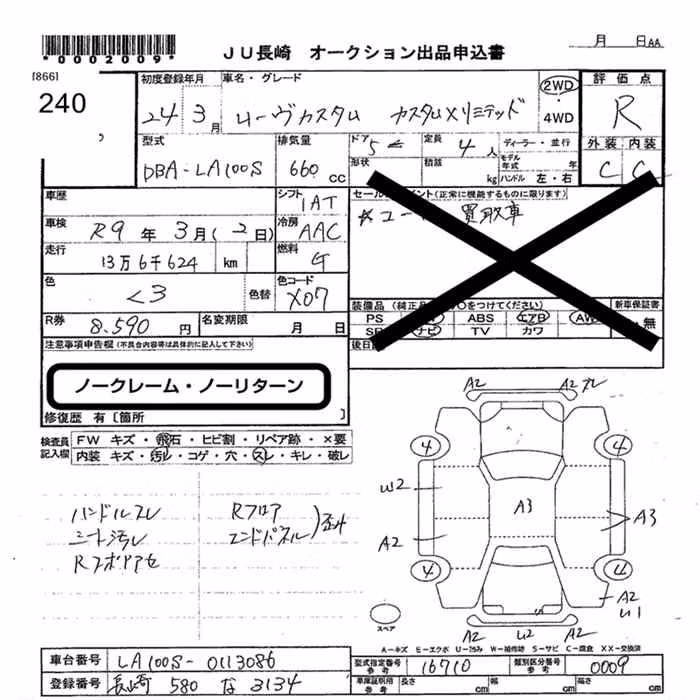 *0002009*
JU長崎 オークション出品申込書
月 日 AA
[866]
240
初度登録年月
24 3月
車名・グレード
ムーヴカスタム カスタムXリミテッド
2WD
4WD
評価点
R
外装 内装
C C
型式
DBA-LA100S
排気量
660 cc
ドア 5
定員 4人
ディーラー・並行
形状
積載 kg
モデル年式 年
ハンドル 左・右
車歴
シフト
IAT
車検
R9年3月(2日)
冷房
AAC
走行
13万6千624 km
燃料
G
色
クロ
色替
色コード
X07
R券
8.590 円
名変期限
月 日
(正常に機能するものに限ります)
買取車
装備品
をつけてください)
新車保証書
PS
ABS
エアB
AW
無
ナビ
TV
カワ
後日
注意事項申告欄(不具合内容等は具体的に記入して下さい)
ノークレーム・ノーリターン
修復歴 有〔箇所 〕
検査員記入欄
FW キズ・飛石・ヒビ割・リペア跡・×要
内装 キズ・汚レ・コゲ・穴・スレ・キレ・破レ
ハンドルスレ
シート汚レ
Rフロア
エンドパネル)歪み
A2
A2
4
4
W2
A3
A3
A2
4
4
A2
U1
A2
U2
A2
スペア
A－キズ E－エクボ U－凹み W－補修跡 S－サビ C－腐食 XX－交換済
車台番号
LA100S-0113086
型式指定番号 参考
16710
類別区分番号 参考
0009
登録番号
長崎 580 な 3134
車庫証明用 参考
長さ cm
幅 cm
高さ cm